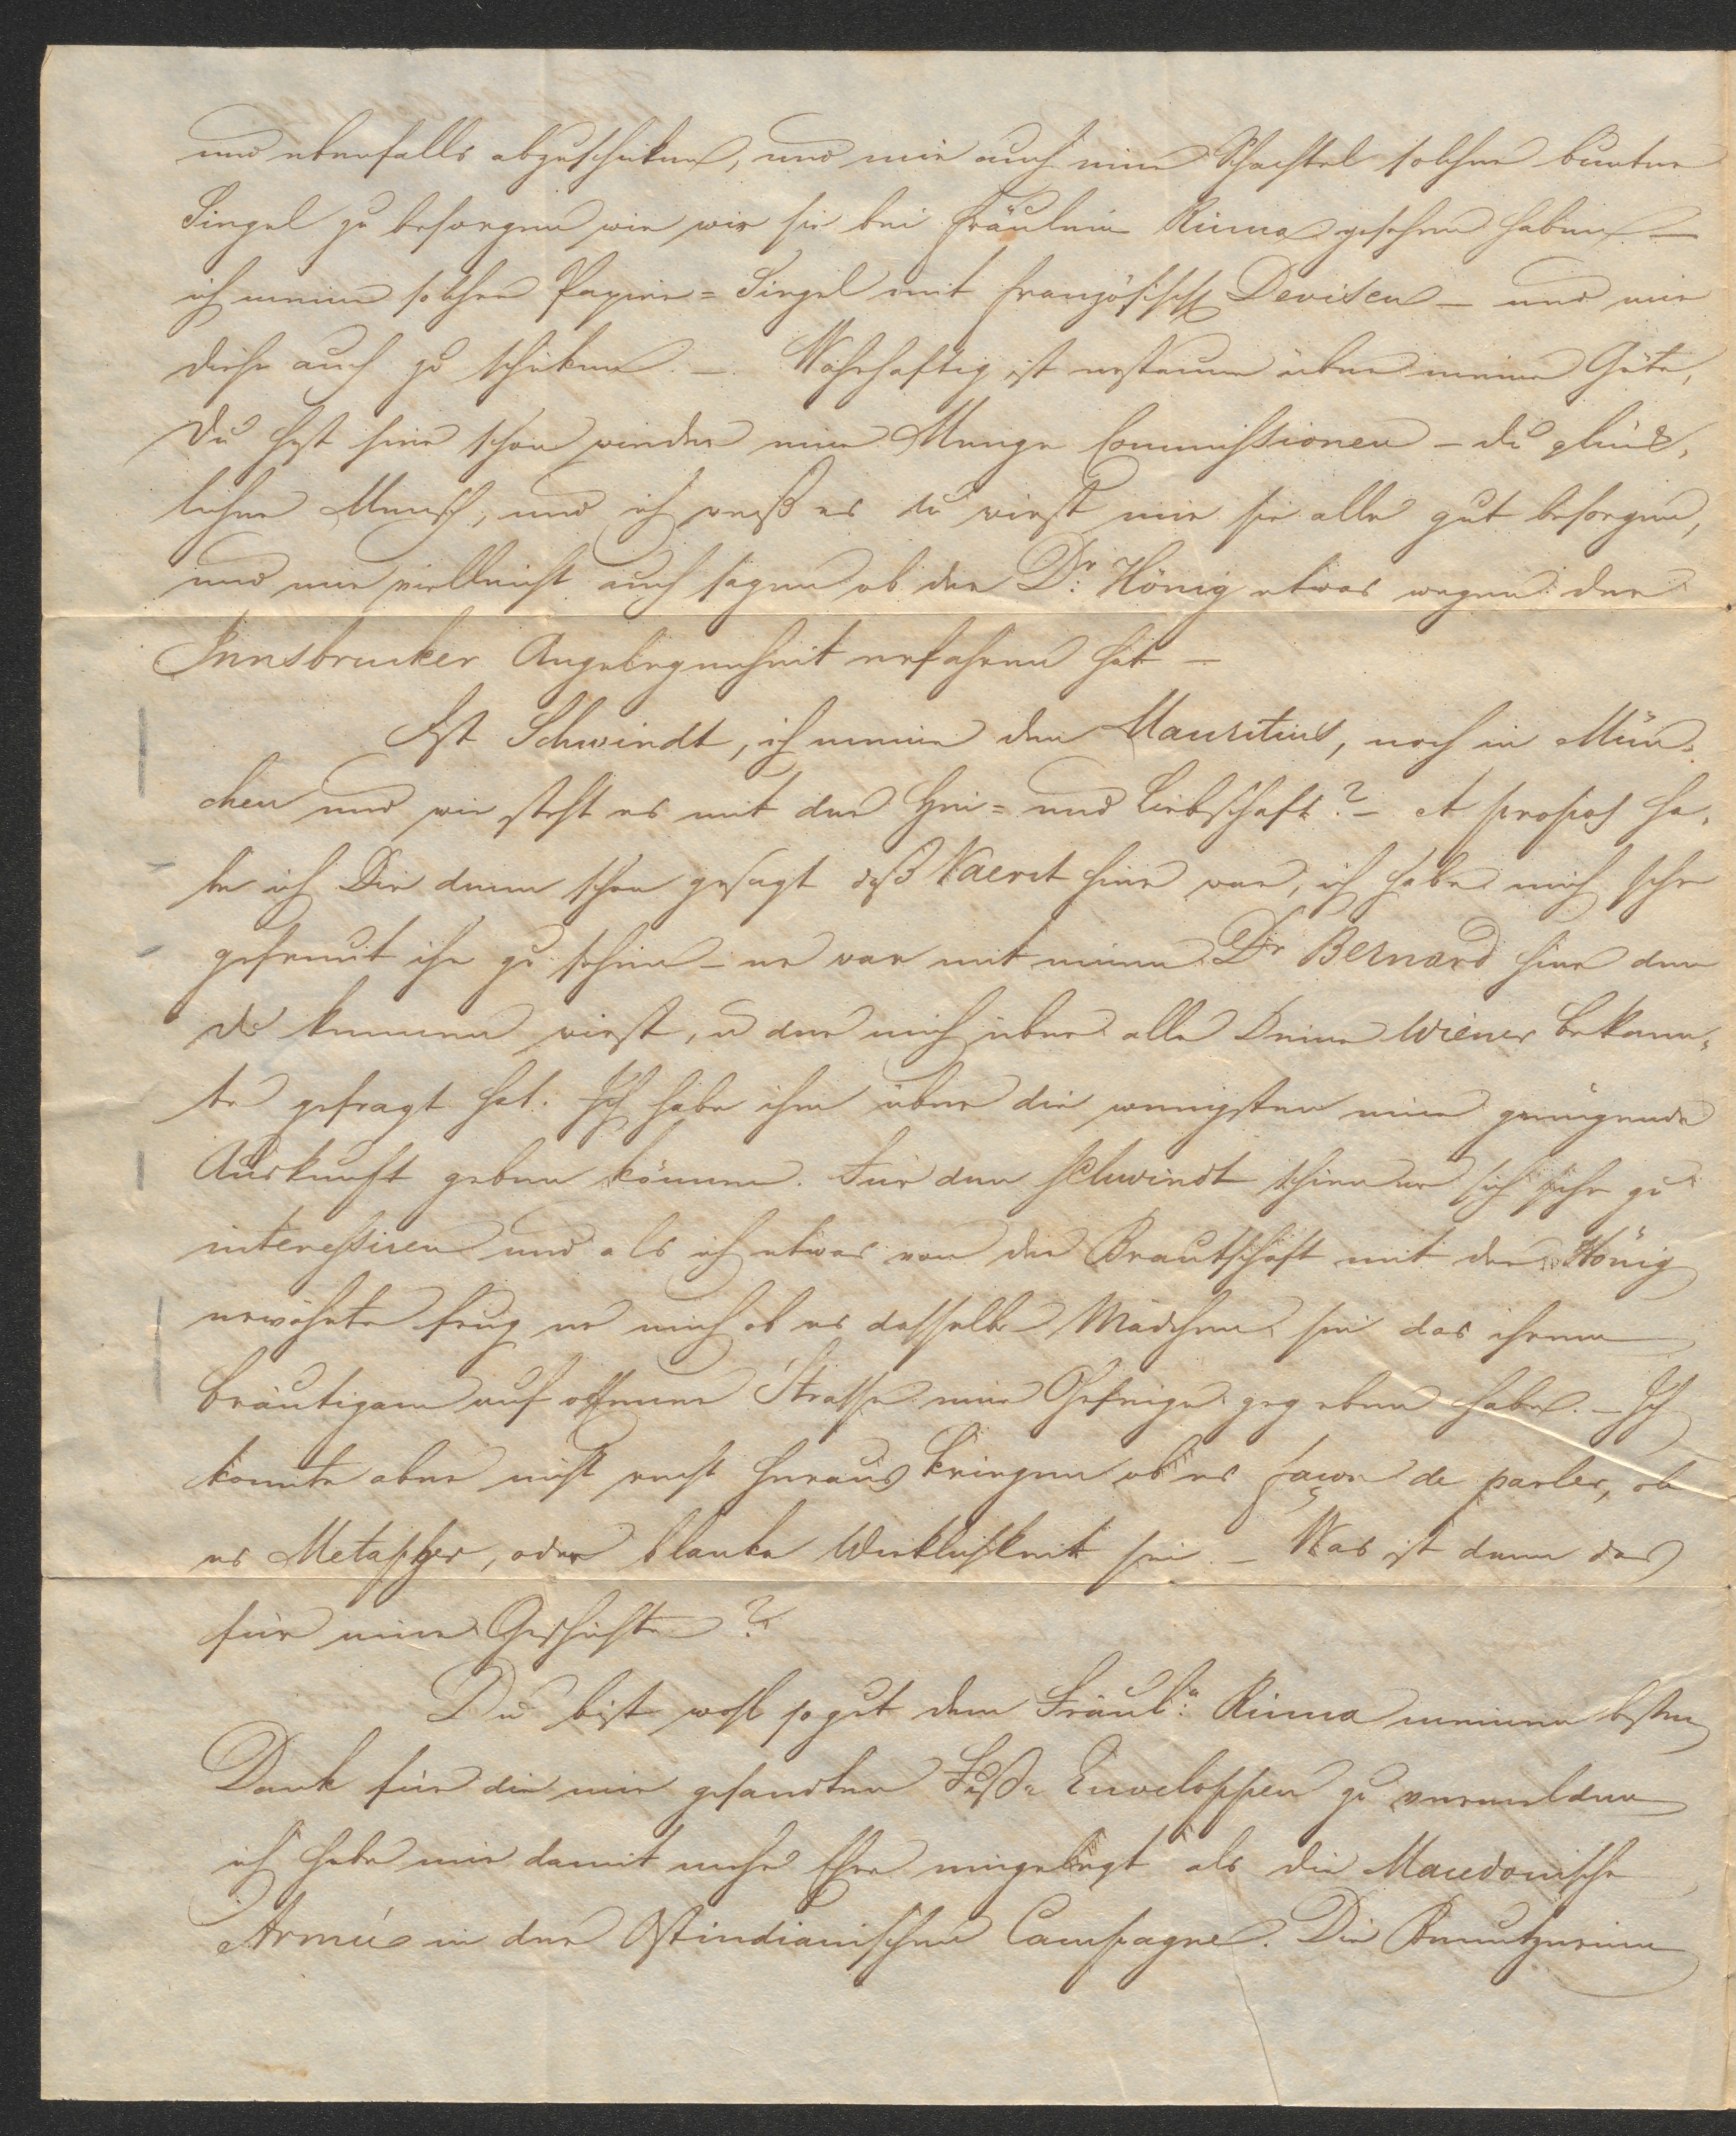 und ebenfalls abzuschicken, und mir auch eine Schachtel solcher bunter
Siegel zu besorgen wie wir sie bei Fräulein Rinna gesehen haben —
ich meine solche Papier=Siegel mit französisch Devisen – und mir
diese auch zu schicken. –. Wahrhaftig ist erstaune über meine Güte,
Du hast hier schon wieder eine Menge Commissionen – du glück„
licher Mensch, und ich weiß es du wirst mir sie alle gut besorgen,
und mir vielleicht auch sagen ob der Dr: Hönig etwas wegen der
Innsbrucker Angelegenheit erfahren hat —
Ist Schwindt, ich meine den Mauritius, noch in Mün„
chen und wie steht es mit der Hei= und Liebschaft? – A propos ha„
be ich Dir denn schon gesagt daß Vaerst hier war, ich habe mich sehr
gefreut ihn zu sehen – er war mit einem Dr Bernard hier den
du kennen wirst, u der mich über alle Deine Wiener Bekann„
te gefragt hat. Ich habe ihm über die wenigsten eine genügende
Auskunft geben können. Für den Schwindt schien er sich sehr zu
interessiren und als ich etwas von der Brautschaft mit der Hönig
erwähnte frug er mich ob es dasselbe Mädchen sei das ihrem
Bräutigam auf offener Strasse eine Ohrfeige gegeben habe. – Ich
konnte aber nicht recht heraus kriegen ob es façon de parler, ob
es Metapher, oder blanke Wirklichkeit sei – Was ist denn das
für eine Geschichte?
Du bist wohl so gut dem Fräul:n Rinna meinen besten
Dank für die mir gesandten Fuß= Enveloppen zu vermelden
ich habe mir damit mehr Ehre eingelegt als die Macedonische
Armée in der Ostindianischen Campagne. Die